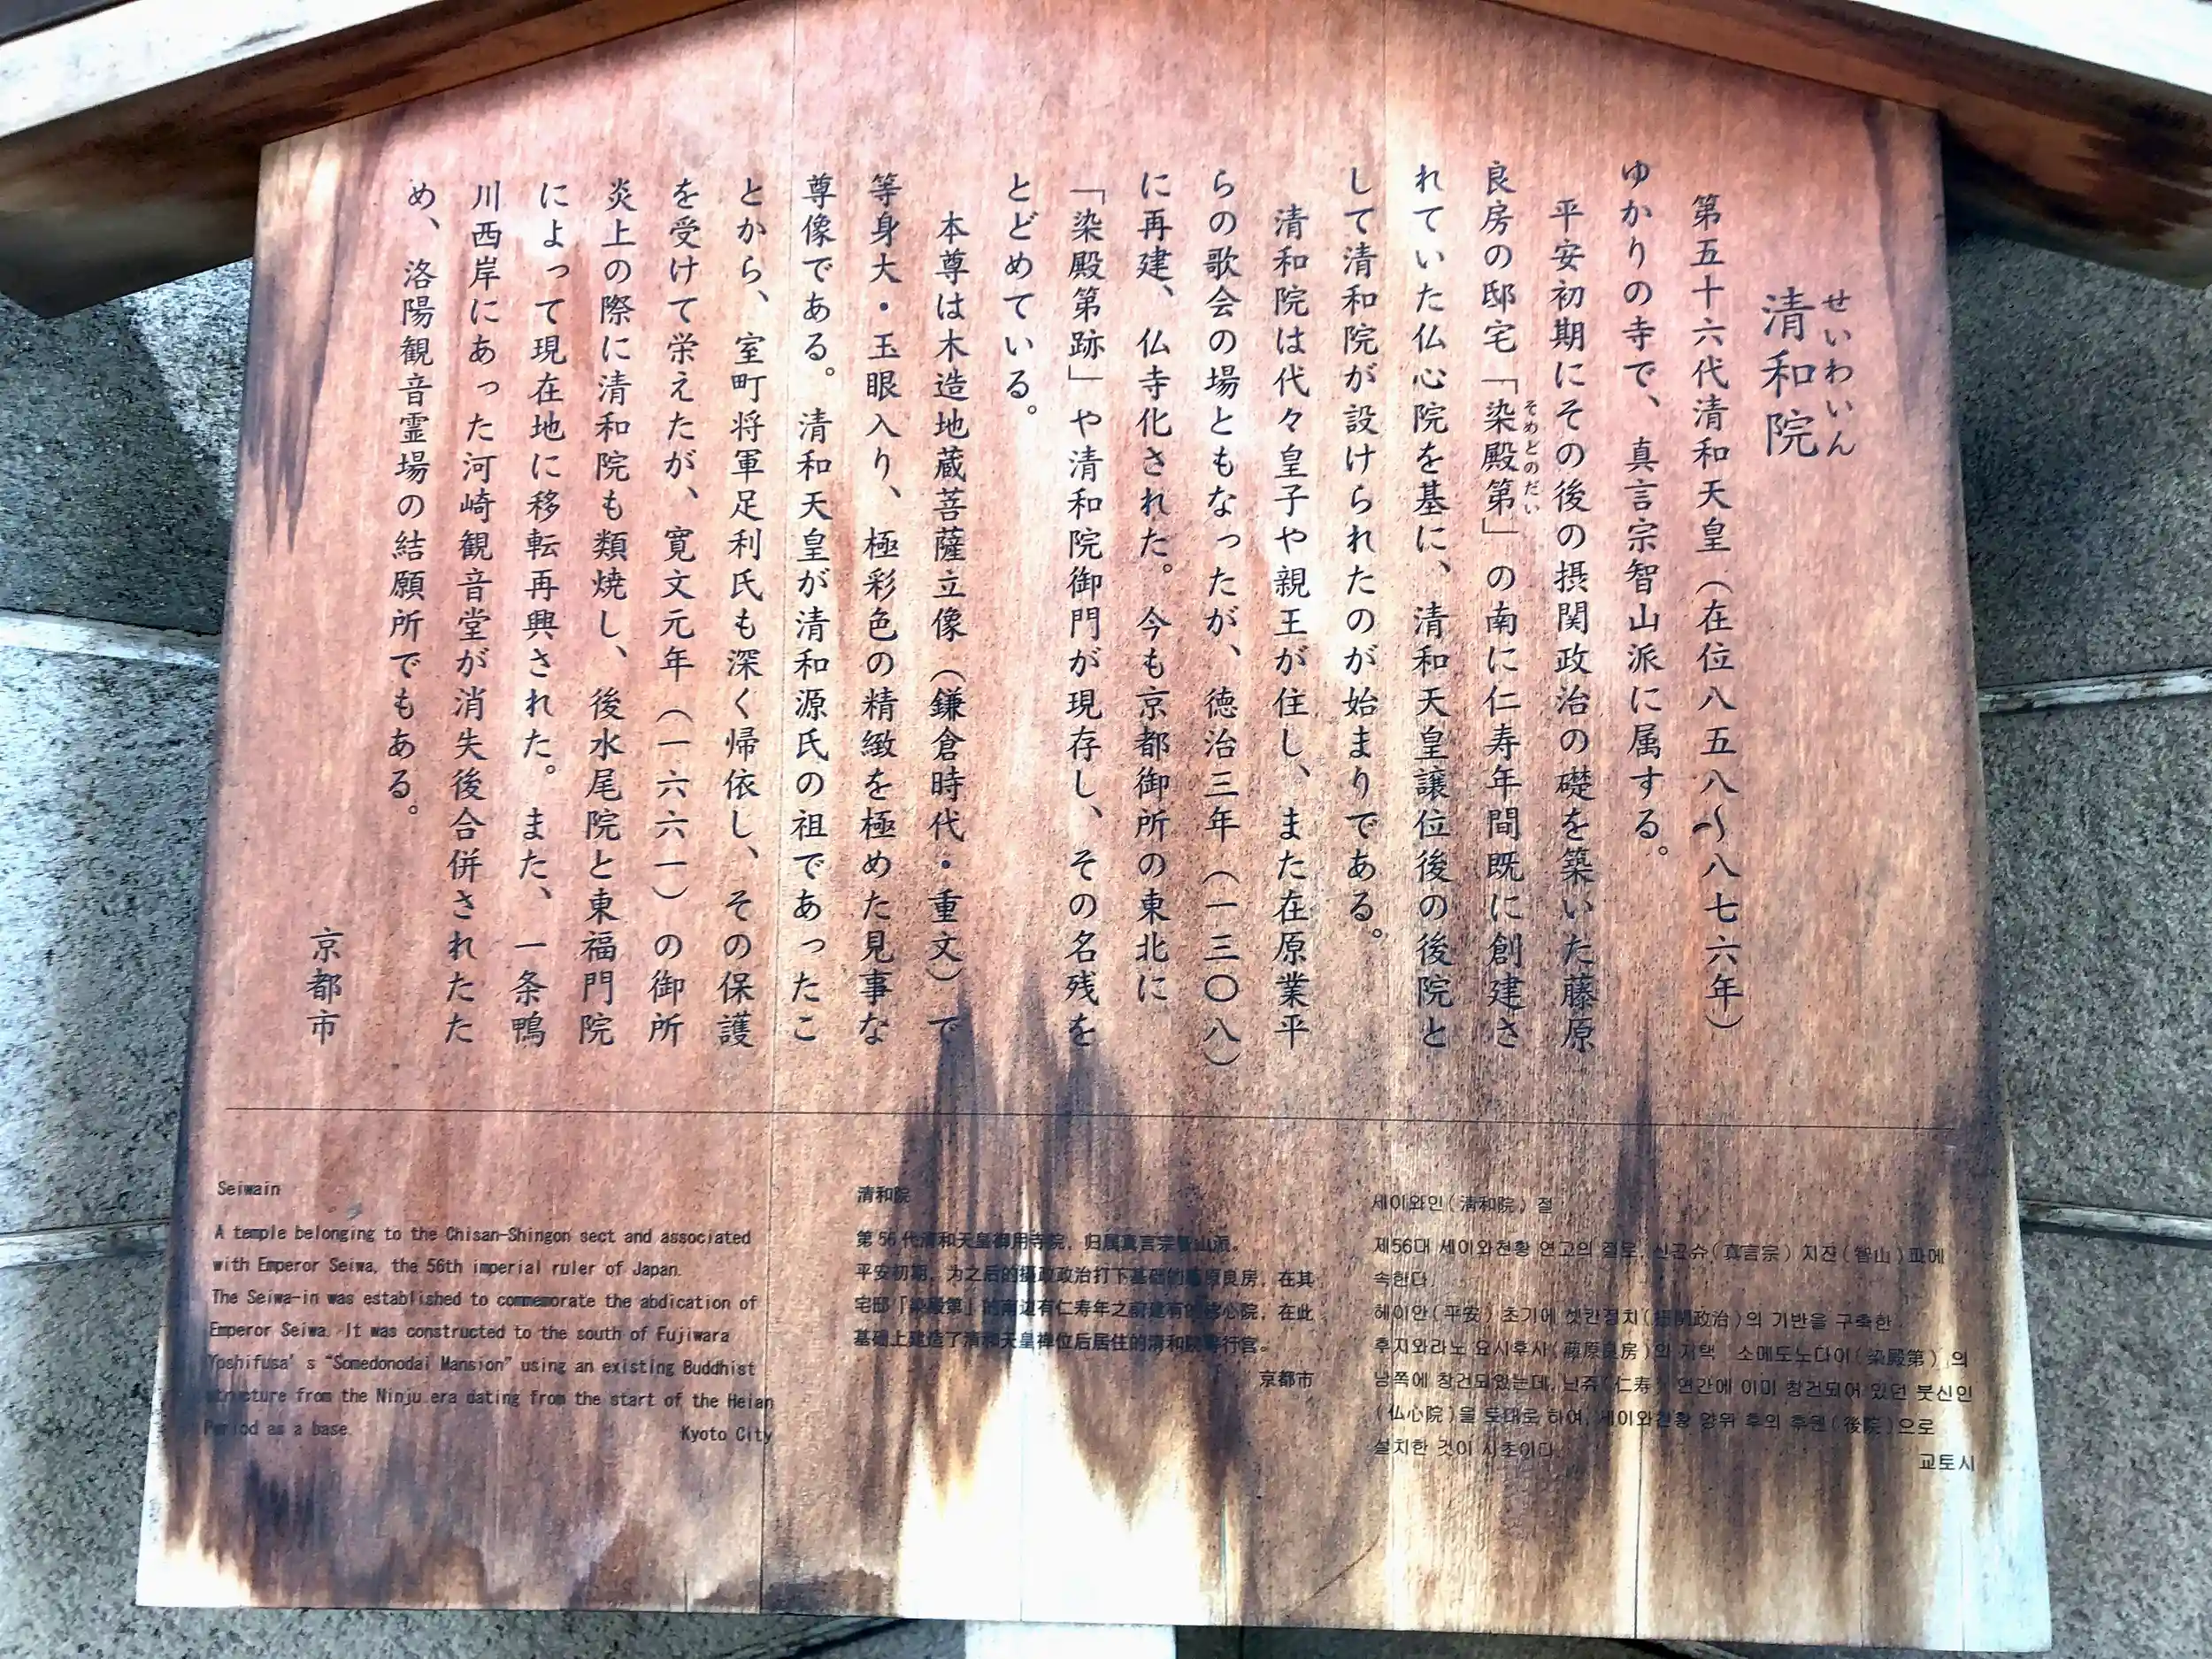 せいわいん
清和院
第五十六代清和天皇（在位八五八〜八七六年）
ゆかりの寺で、真言宗智山派に属する。
平安初期にその後の摂関政治の礎を築いた藤原
良房の邸宅「染殿第」の南に仁寿年間既に創建さ
そめどのだい
れていた仏心院を基に、清和天皇譲位後の後院と
して清和院が設けられたのが始まりである。
清和院は代々皇子や親王が住し、また在原業平
らの歌会の場ともなったが、徳治三年（一三〇八）
に再建、仏寺化された。今も京都御所の東北に
「染殿第跡」や清和院御門が現存し、その名残を
とどめている。
本尊は木造地蔵菩薩立像（鎌倉時代・重文）で
等身大・玉眼入り、極彩色の精緻を極めた見事な
尊像である。清和天皇が清和源氏の祖であったこ
とから、室町将軍足利氏も深く帰依し、その保護
を受けて栄えたが、寛文元年（一六六一）の御所
炎上の際に清和院も類焼し、後水尾院と東福門院
によって現在地に移転再興された。また、一条鴨
川西岸にあった河崎観音堂が消失後合併されたた
め、洛陽観音霊場の結願所でもある。
京都市
Seiwain
A temple belonging to the Chisan-Shingon sect and associated
with Emperor Seiwa, the 56th imperial ruler of Japan.
The Seiwa-in was established to commemorate the abdication of
Emperor Seiwa. It was constructed to the south of Fujiwara
Yoshifusa's "Somedonodai Mansion" using an existing Buddhist
structure from the Ninju era dating from the start of the Heian
Period as a base.
Kyoto City
清和院
第56代清和天皇御用寺院，归属真言宗智山派。
平安初期，为之后的摄政政治打下基础的藤原良房，在其
宅邸「染殿第」的南边有仁寿年之前建有的佛心院，在此
基础上建造了清和天皇禅位后居住的清和院等行宫。
京都市
세이와인(淸和院) 절
제56대 세이와천황 연고의 절로, 신곤슈(真言宗) 치잔(智山)파에
속한다.
헤이안(平安) 초기에 셋칸정치(摂関政治)의 기반을 구축한
후지와라노 요시후사(藤原良房)의 저택 소메도노다이(染殿第)의
남쪽에 창건되었는데, 닌쥬(仁寿) 연간에 이미 창건되어 있던 붓신인
(仏心院)을 토대로 하여, 세이와천황 양위 후의 후원(後院)으로
설치한 것이 시초이다.
교토시